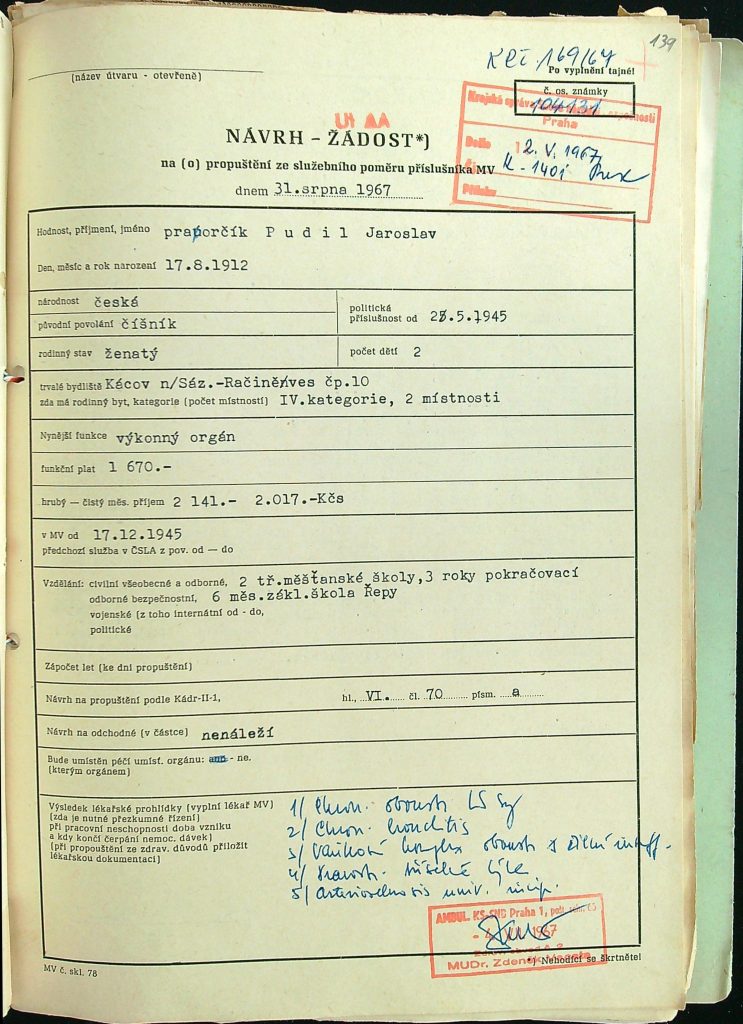 139
169/67
(název útvaru - otevřeně)
Po vyplnění tajné!
č. os. známky
104131
Krajská správa
Praha
Došlo 12. V. 1967
K-1401
NÁVRH - ŽÁDOST*)
na (o) propuštění ze služebního poměru příslušníka MV
dnem 31.srpna 1967
Hodnost, příjmení, jméno praporčík P u d i l Jaroslav
Den, měsíc a rok narození 17.8.1912
národnost česká
politická příslušnost od 25.5.1945
původní povolání číšník
rodinný stav ženatý
počet dětí 2
trvalé bydliště Kácov n/Sáz.-Račiněves čp.10
zda má rodinný byt, kategorie (počet místností) IV.kategorie, 2 místnosti
Nynější funkce výkonný orgán
funkční plat 1 670.-
hrubý — čistý měs. příjem 2 141.- 2.017.-Kčs
v MV od 17.12.1945
předchozí služba v ČSLA z pov. od — do
Vzdělání: civilní všeobecné a odborné, 2 tř.měšťanské školy,3 roky pokračovací
odborné bezpečnostní, 6 měs.zákl.škola Řepy
vojenské (z toho internátní od - do,
politické
Zápočet let (ke dni propuštění)
Návrh na propuštění podle Kádr-II-1, hl., VI. čl. 70 písm. a
Návrh na odchodné (v částce) nenáleží
Bude umístěn péčí umísť. orgánu: ano - ne.
(kterým orgánem)
Výsledek lékařské prohlídky (vyplní lékař MV)
(zda je nutné přezkumné řízení)
při pracovní neschopnosti doba vzniku
a kdy končí čerpání nemoc. dávek)
(při propouštění ze zdrav. důvodů přiložit
lékařskou dokumentaci)
1/ Chron.
2/ Chron. bronchitis
3/
4/
5/ Arteriosclerosis univ. incip.
AMBUL. KS-SNB Praha 1,
1967
MUDr. Zdeněk
*) Nehodící se škrtněte!
MV č. skl. 78